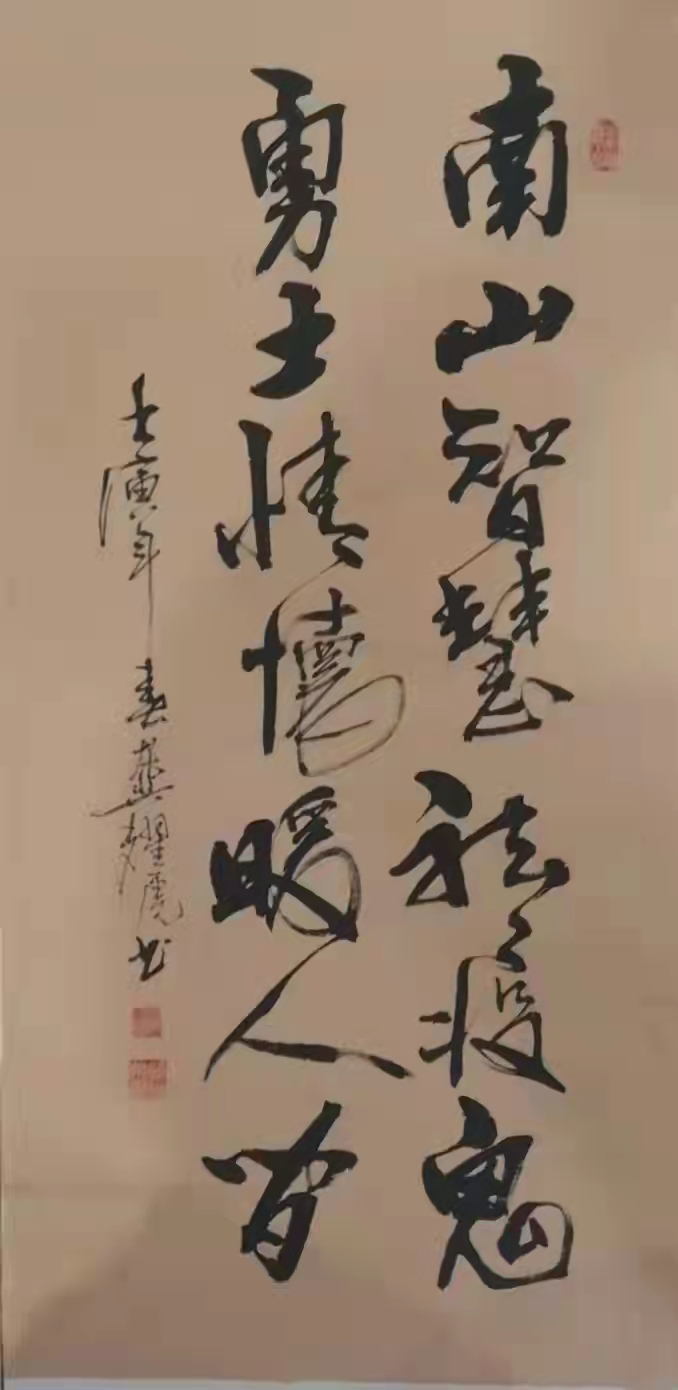 南山智慧祛疫鬼
勇士情懷暖人間
壬寅年春龚耀虎书